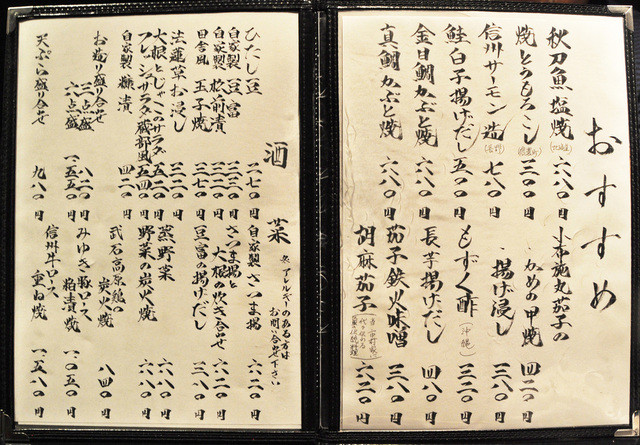 おすすめ
秋刀魚塩焼(北海道) 六八〇円
焼とうもろこし(信濃町) 三〇〇円
信州サーモン造(長野) 七八〇円
鮭白子揚げだし 五〇〇円
金目鯛かぶと焼 六八〇円
真鯛かぶと焼 六八〇円
小布施丸茄子の
・かめの甲焼 四二〇円
・揚げ浸し 三八〇円
もずく酢(沖縄) 三二〇円
長芋揚げだし 四八〇円
茄子鉄火味噌 三八〇円
胡麻茄子 六二〇円
酒菜
※アレルギーのある方は
お問い合せ下さい
ひたし豆 二七〇円
自家製 豆富 三三〇円
自家製松前漬 三二〇円
田舎風 玉子焼 三七〇円
法蓮草お浸し 三二〇円
大根とじゃこのサラダ 五二〇円
フレッシュサラダ蔵部風 五四〇円
自家製 糠漬 四二〇円
お造り盛り合せ
三点盛 八二〇円
六点盛 一、五五〇円
天ぷら盛り合せ 九八〇円
自家製さつま揚 六二〇円
さつま揚と
大根の炊き合せ 六二〇円
豆富の揚げだし 三八〇円
蒸野菜 六八〇円
野菜の炭火焼 六八〇円
武石高原鶏の
炭火焼 八四〇円
みゆき豚ロース
粕漬焼 一、〇五〇円
信州牛ロース
重ね焼 一、五八〇円